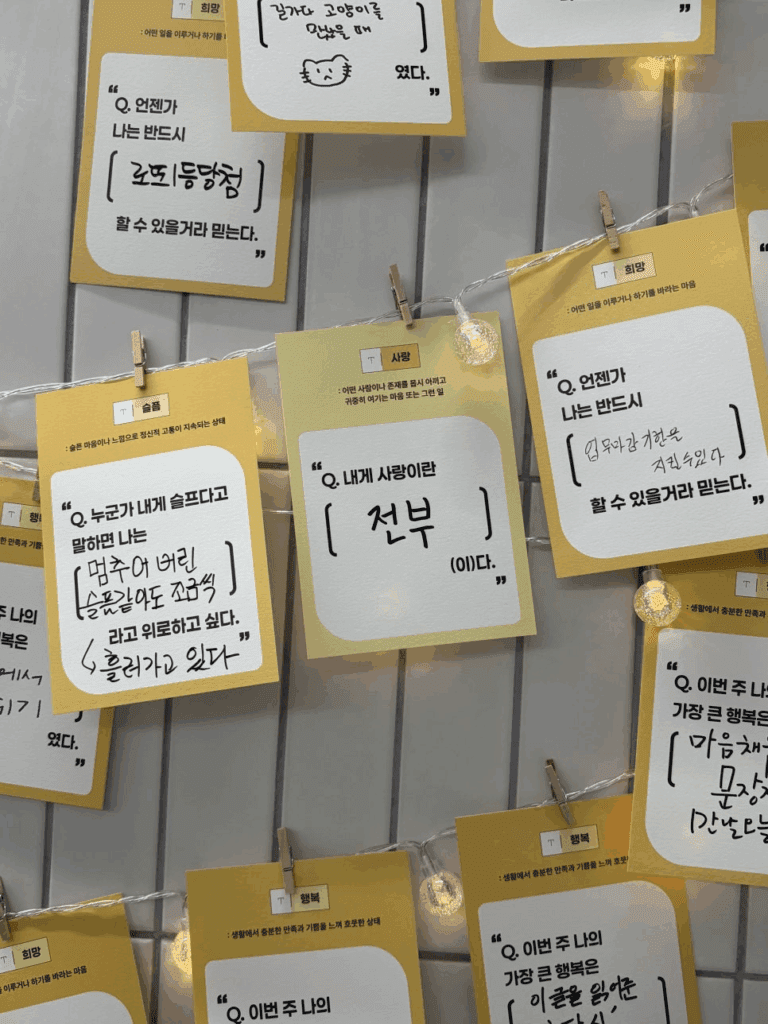 희망
: 어떤 일을 이루거나 하기를
Q. 언젠가
나는 반드시
로또1등당첨
할 수 있을거라 믿는다.
길가다 고양이를
만났을 때
였다.
희망
: 어떤 일을 이루거나 하기를 바라는 마음
Q. 언젠가
나는 반드시
업무마감기한을
지킬수있다
할 수 있을거라 믿는다.
사랑
: 어떤 사람이나 존재를 몹시 아끼고
귀중히 여기는 마음 또는 그런 일
Q. 내게 사랑이란
전부
(이)다.
슬픔
: 슬픈 마음이나 느낌으로 정신적 고통이 지속되는 상태
Q. 누군가 내게 슬프다고
말하면 나는
멈추어 버린
슬픔같아도 조금씩
라고 위로하고 싶다.
흘러가고 있다
행
한 만족과 기쁨을
주 나의
복은
에서
였다.
: 생활에서 충분한 만족과
Q. 이번 주 나의
가장 큰 행복은
마음채
문장
행복
: 생활에서 충분한 만족과 기쁨을 느껴 흐뭇한
Q. 이번 주 나의
가장 큰 행복은
이 글을 읽어준
당신
행복
: 생활에서 충분한 만족과 기쁨을 느껴 흐뭇한 상태
Q. 이번 주 나의
희망
이루거나 하기를 바라는 마음